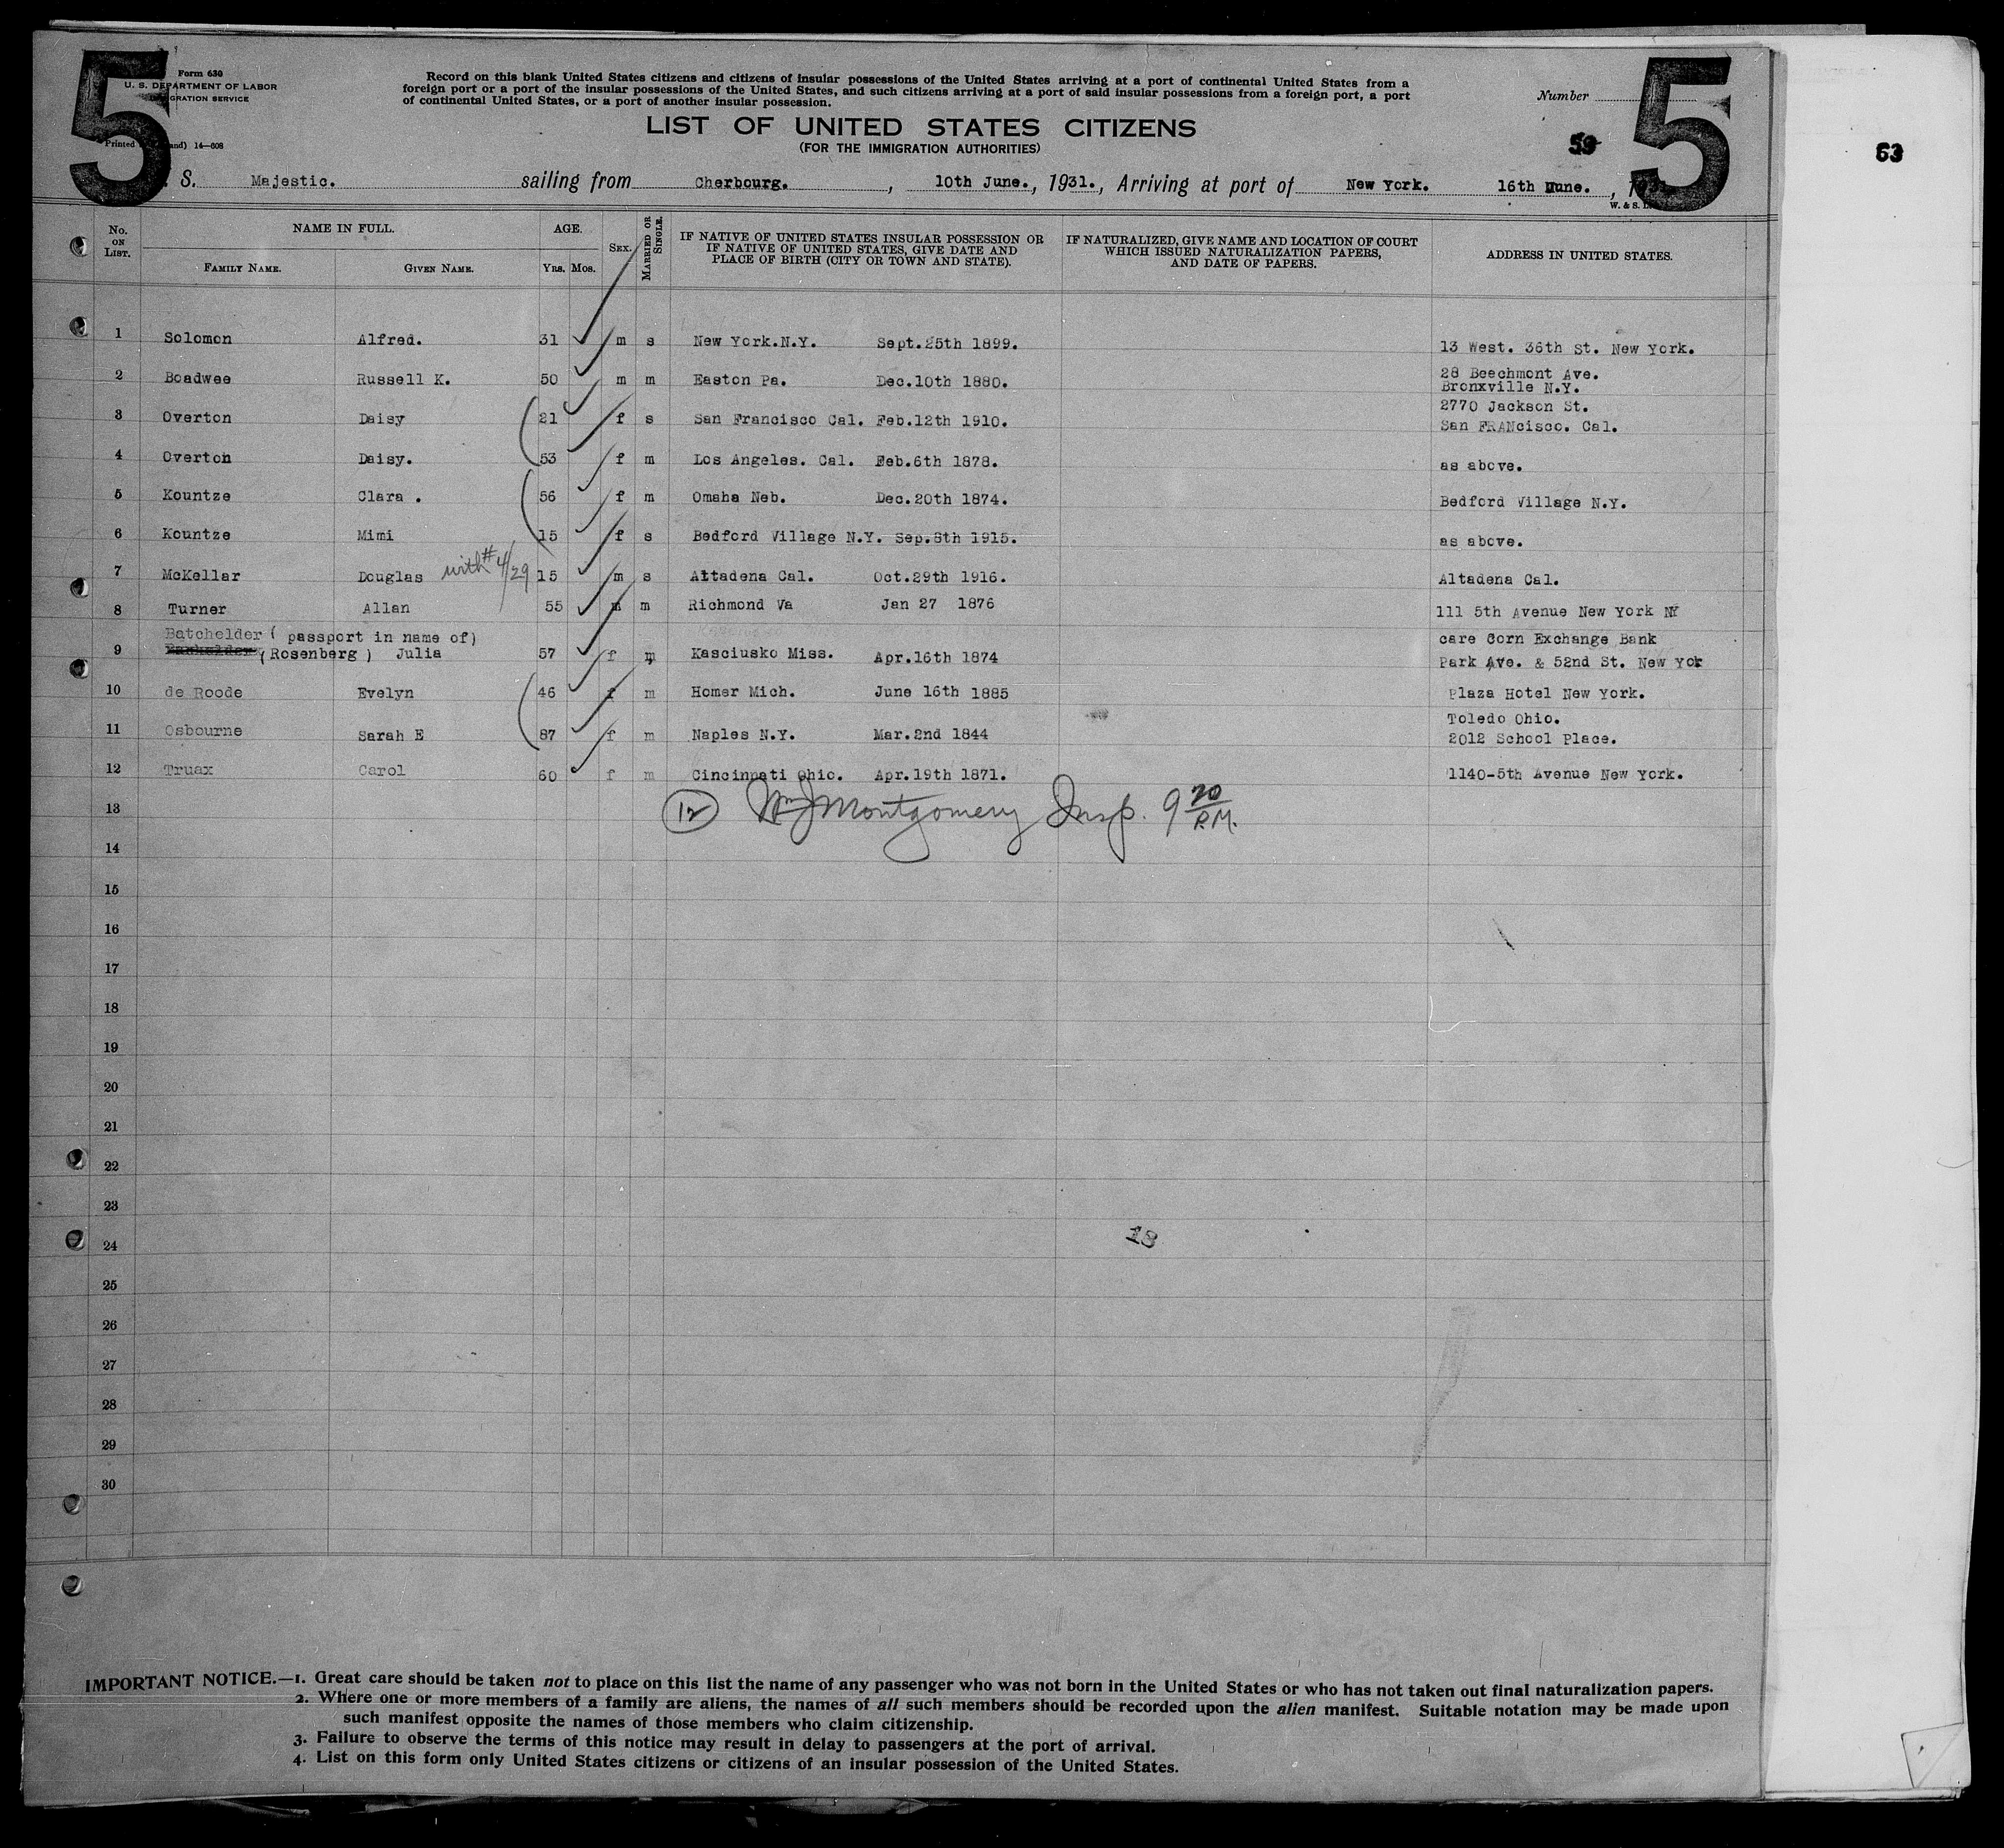 5
Form 630
U. S. DEPARTMENT OF LABOR
IMMIGRATION SERVICE
Printed and) 14—608
Record on this blank United States citizens and citizens of insular possessions of the United States arriving at a port of continental United States from a
foreign port or a port of the insular possessions of the United States, and such citizens arriving at a port of said insular possessions from a foreign port, a port
of continental United States, or a port of another insular possession.
LIST OF UNITED STATES CITIZENS
(FOR THE IMMIGRATION AUTHORITIES)
Number
5
59
63
S. Majestic. sailing from Cherbourg. , 10th June., 1931., Arriving at port of New York. 16th June. , 1931
W. & S. L.
No. ON LIST. NAME IN FULL. FAMILY NAME. GIVEN NAME. AGE. YRS. MOS. SEX. MARRIED OR SINGLE. IF NATIVE OF UNITED STATES INSULAR POSSESSION OR IF NATIVE OF UNITED STATES, GIVE DATE AND PLACE OF BIRTH (CITY OR TOWN AND STATE). IF NATURALIZED, GIVE NAME AND LOCATION OF COURT WHICH ISSUED NATURALIZATION PAPERS, AND DATE OF PAPERS. ADDRESS IN UNITED STATES.
1 Solomon Alfred. 31 m s New York.N.Y. Sept.25th 1899. 13 West. 36th St. New York.
2 Boadwee Russell K. 50 m m Easton Pa. Dec.10th 1880. 28 Beechmont Ave.
Bronxville N.Y.
3 Overton Daisy 21 f s San Francisco Cal. Feb.12th 1910. 2770 Jackson St.
San FRANcisco. Cal.
4 Overton Daisy. 53 f m Los Angeles. Cal. Feb.6th 1878. as above.
5 Kountze Clara . 56 f m Omaha Neb. Dec.20th 1874. Bedford Village N.Y.
6 Kountze Mimi 15 f s Bedford Village N.Y. Sep.8th 1915. as above.
7 McKellar Douglas with # 4/29 15 m s Altadena Cal. Oct.29th 1916. Altadena Cal.
8 Turner Allan 55 m m Richmond Va Jan 27 1876 111 5th Avenue New York NY
Batchelder ( passport in name of) care Corn Exchange Bank
9 (Rosenberg ) Julia 57 f m Kasciusko Miss. Apr.16th 1874 Park Ave. & 52nd St. New Yok
10 de Roode Evelyn 46 f m Homer Mich. June 16th 1885 Plaza Hotel New York.
Toledo Ohio.
11 Osbourne Sarah E 87 f m Naples N.Y. Mar.2nd 1844 2012 School Place.
12 Truax Carol 60 f m Cincinnati Ohio. Apr.19th 1871. 1140-5th Avenue New York.
13 (12) Wm J Montgomery Insp. 9 20 P.M.
14
15
16
17
18
19
20
21
22
23
24 18
25
26
27
28
29
30
IMPORTANT NOTICE.—1. Great care should be taken not to place on this list the name of any passenger who was not born in the United States or who has not taken out final naturalization papers.
2. Where one or more members of a family are aliens, the names of all such members should be recorded upon the alien manifest. Suitable notation may be made upon
such manifest opposite the names of those members who claim citizenship.
3. Failure to observe the terms of this notice may result in delay to passengers at the port of arrival.
4. List on this form only United States citizens or citizens of an insular possession of the United States.